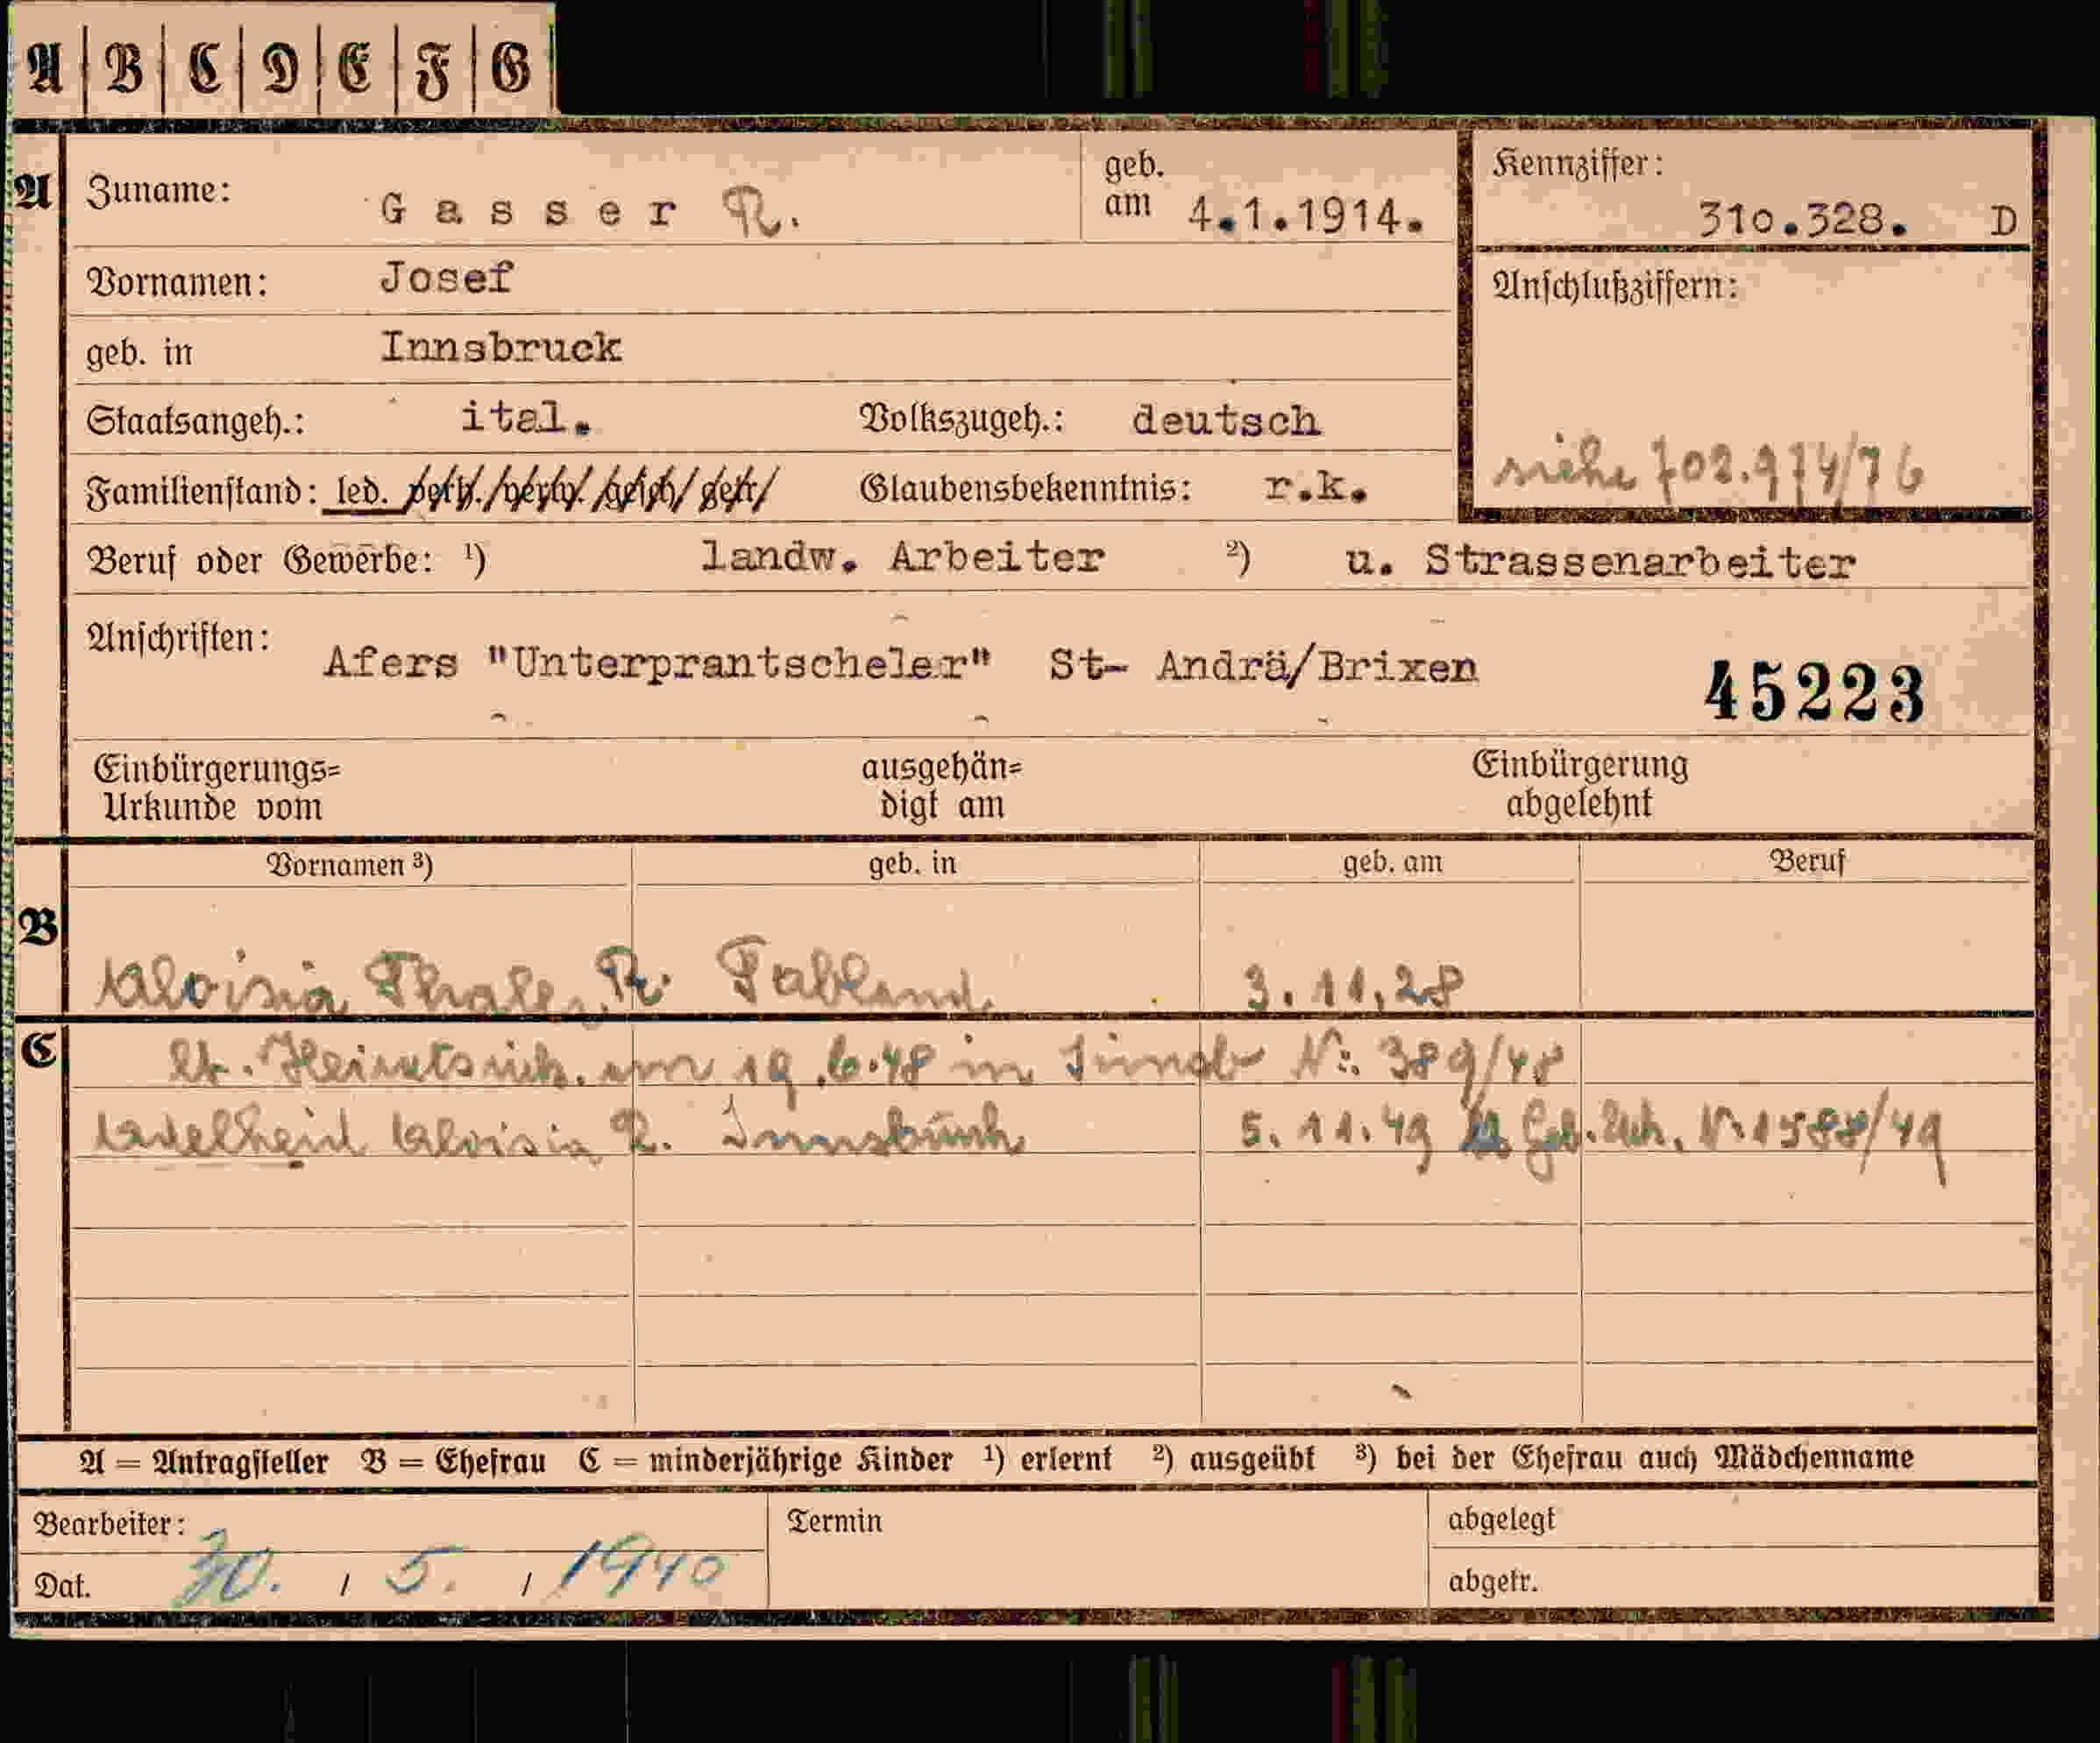 A | B | C | D | E | F | G
A Zuname: Gasser R. geb. am 4.1.1914. Kennziffer: 310.328. D
Vornamen: Josef Anschlußziffern:
geb. in Innsbruck
Staatsangeh.: ital. Volkszugeh.: deutsch siehe 702.974/76
Familienstand: led. verh./verw./gesch/getr/ Glaubensbekenntnis: r.k.
Beruf oder Gewerbe: ¹) landw. Arbeiter ²) u. Strassenarbeiter
Anschriften: Afers "Unterprantscheler" St- Andrä/Brixen 45223
Einbürgerungs= ausgehän= Einbürgerung
Urkunde vom digt am abgelehnt
Vornamen ³) geb. in geb. am Beruf
B Aloisia Thaler R. Tabland 3.11.28
C lt. Heiratsurk. am 19.6.48 in Innsbr N: 389/48
Adelheid Aloisia R. Innsbruck 5.11.49 Geb. Urk. N. 1588/49
A = Antragsteller B = Ehefrau C = minderjährige Kinder ¹) erlernt ²) ausgeübt ³) bei der Ehefrau auch Mädchenname
Bearbeiter: Termin abgelegt
Dat. 30. / 5. / 1940 abgetr.